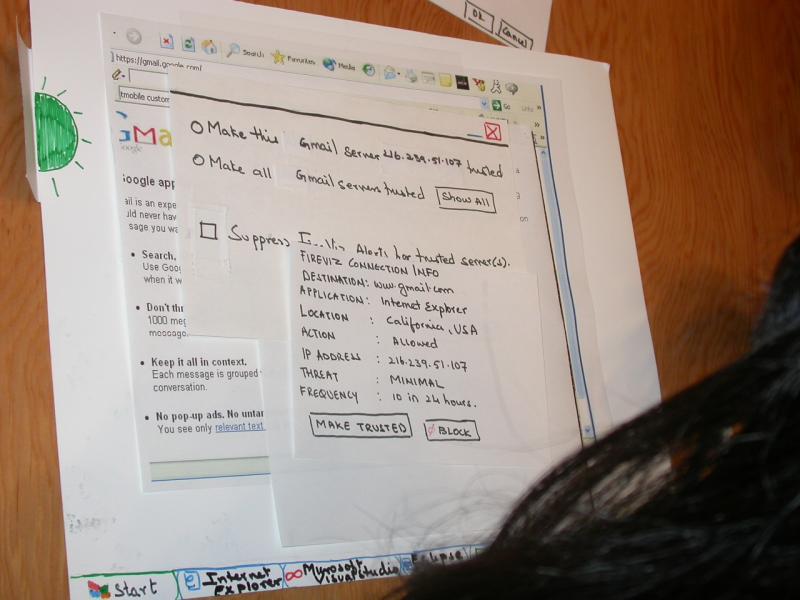 Ok Cancel
Search Favorites Media
https://gmail.google.com/
Go Links »
tmobile custom
GMa
Google
Make this Gmail Server 216.239.51.107 trusted
Make all Gmail servers trusted Show All
Suppress Alerts for trusted server(s).
Google app
ail is an expe
uld never hav
sage you wa
• Search,
Use Goog
when it w
• Don't thr
1000 meg
message.
• Keep it all in context.
Each message is grouped
conversation.
• No pop-up ads. No untar
You see only relevant text
FIREVIZ CONNECTION INFO
DESTINATION: www.gmail.com
APPLICATION: Internet Explorer
LOCATION : California, USA
ACTION : Allowed
IP ADDRESS : 216.239.51.107
THREAT : MINIMAL
FREQUENCY : 10 in 24 hours.
MAKE TRUSTED BLOCK
Start Internet Explorer Myrosoft Visual Studio Eclipse